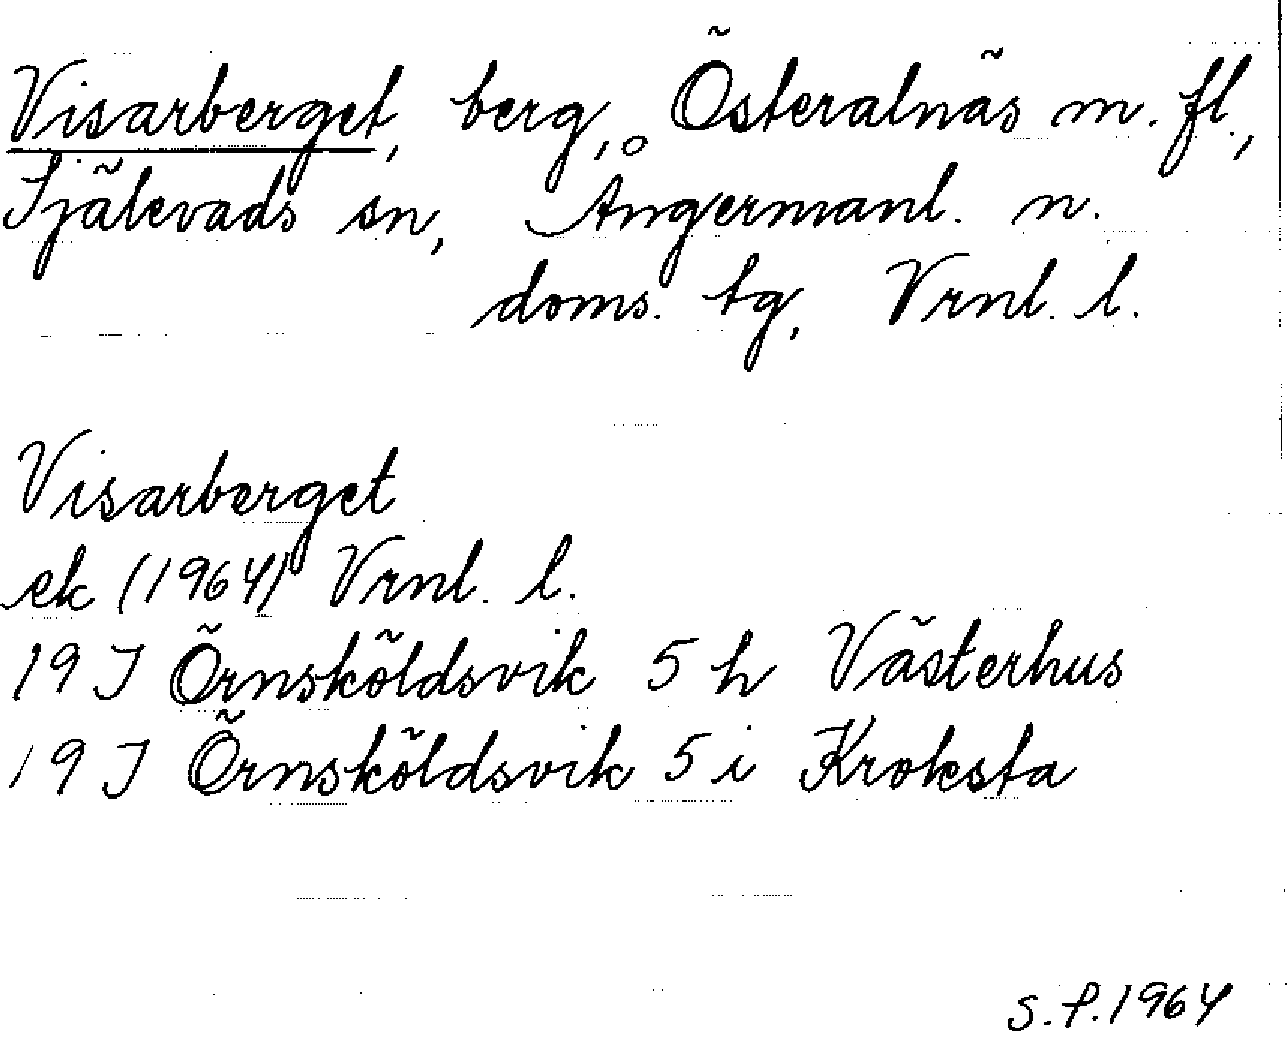 Visarberget, berg, Österalnäs m. fl.,
Själevads sn, Ångermanl. n.
doms. tg, Vrnl. l.
Visarberget
ek (1964) Vrnl. l.
19 J Örnsköldsvik 5 h Västerhus
19 J Örnsköldsvik 5 i Kroksta
S.P.1964